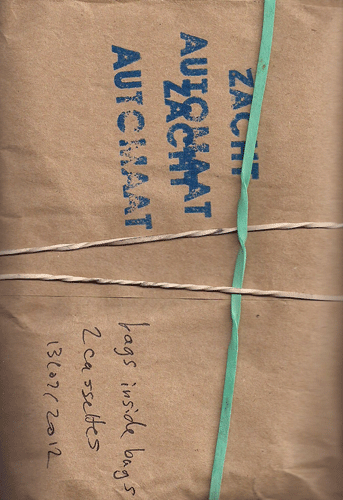 ZACHT
AUTOMAAT
ZACHT
AUTOMAAT
bags inside bags
2 cassettes
13/07/2012